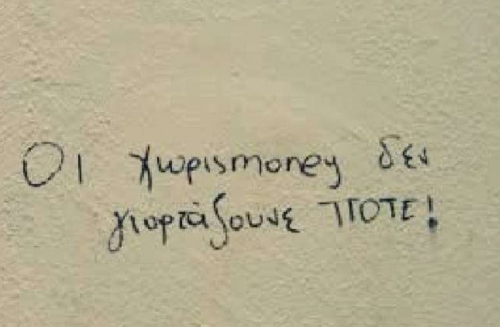 Οι χωρισmoney δεν
γιορτάζουνε ΠΟΤΕ!